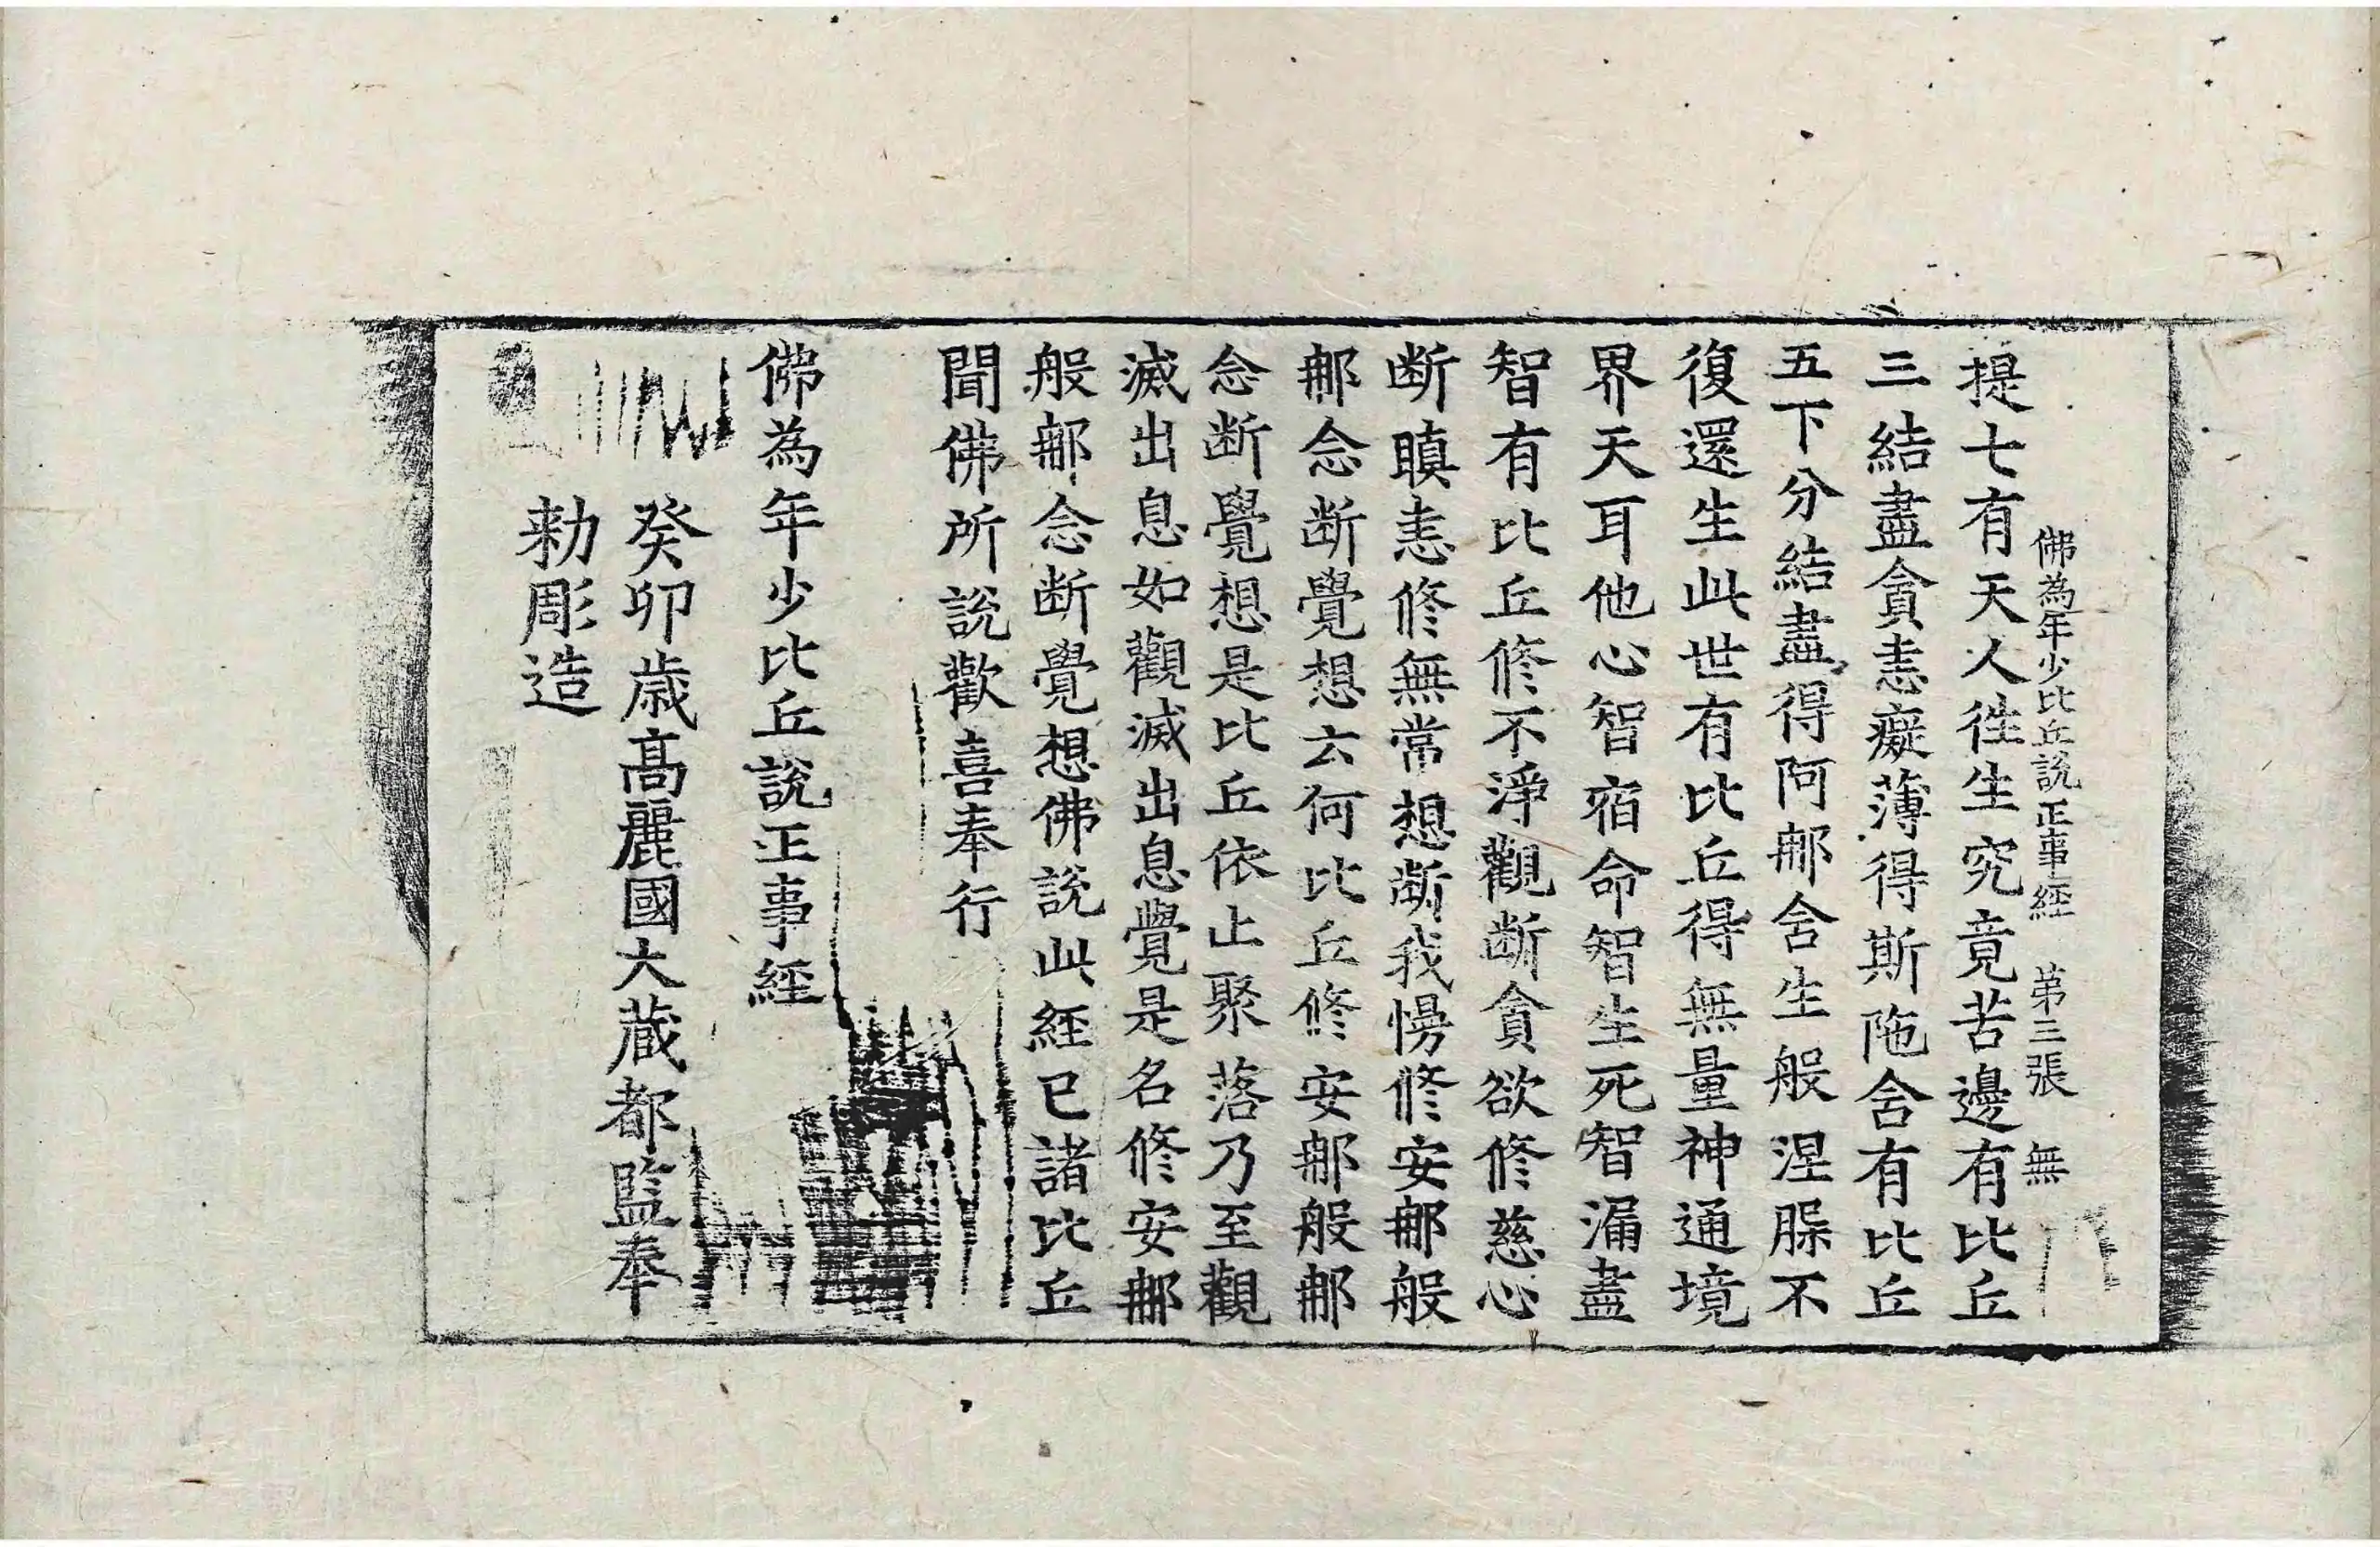 佛為年少比丘說正事經 第三張 無
提七有天人往生究竟苦邊有比丘
三結盡貪恚癡薄得斯陁含有比丘
五下分結盡得阿那含生般涅槃不
復還生此世有比丘得無量神通境
界天耳他心智宿命智生死智漏盡
智有比丘修不淨觀断貪欲修慈心
断瞋恚修無常想断我慢修安那般
那念断覺想云何比丘修安那般那
念断覺想是比丘依止聚落乃至觀
滅出息如觀滅出息覺是名修安那
般那念断覺想佛說此經已諸比丘
聞佛所說歡喜奉行
佛為年少比丘說正事經
癸卯歲高麗國大藏都監奉
勑彫造